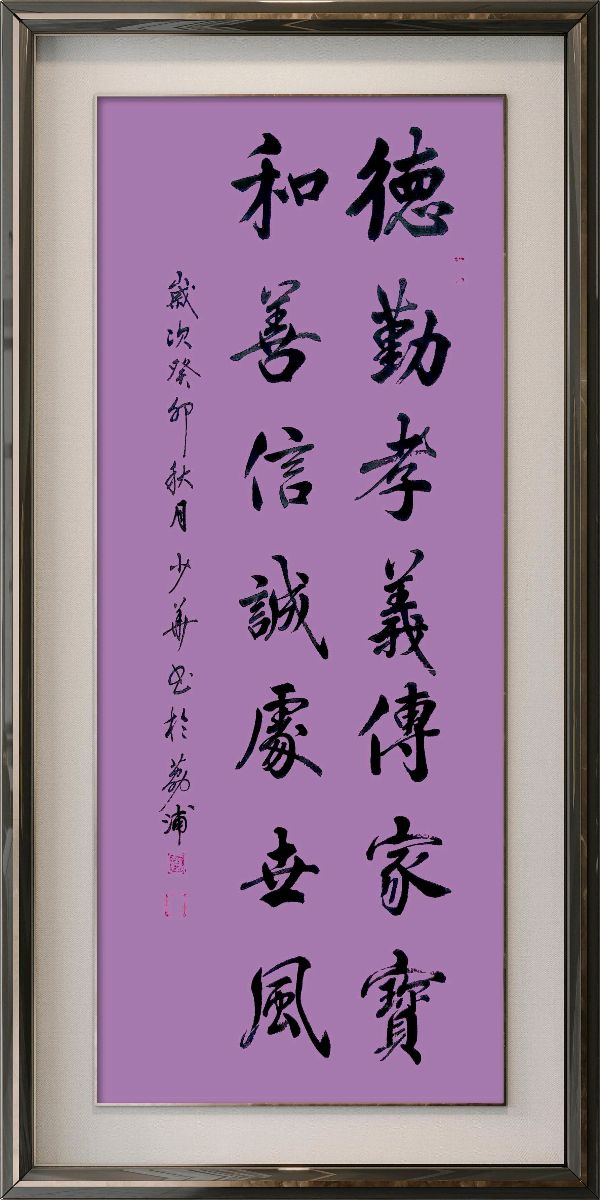 德勤孝義傳家寶
和善信誠處世風
歲次癸卯秋月少華书於荔浦